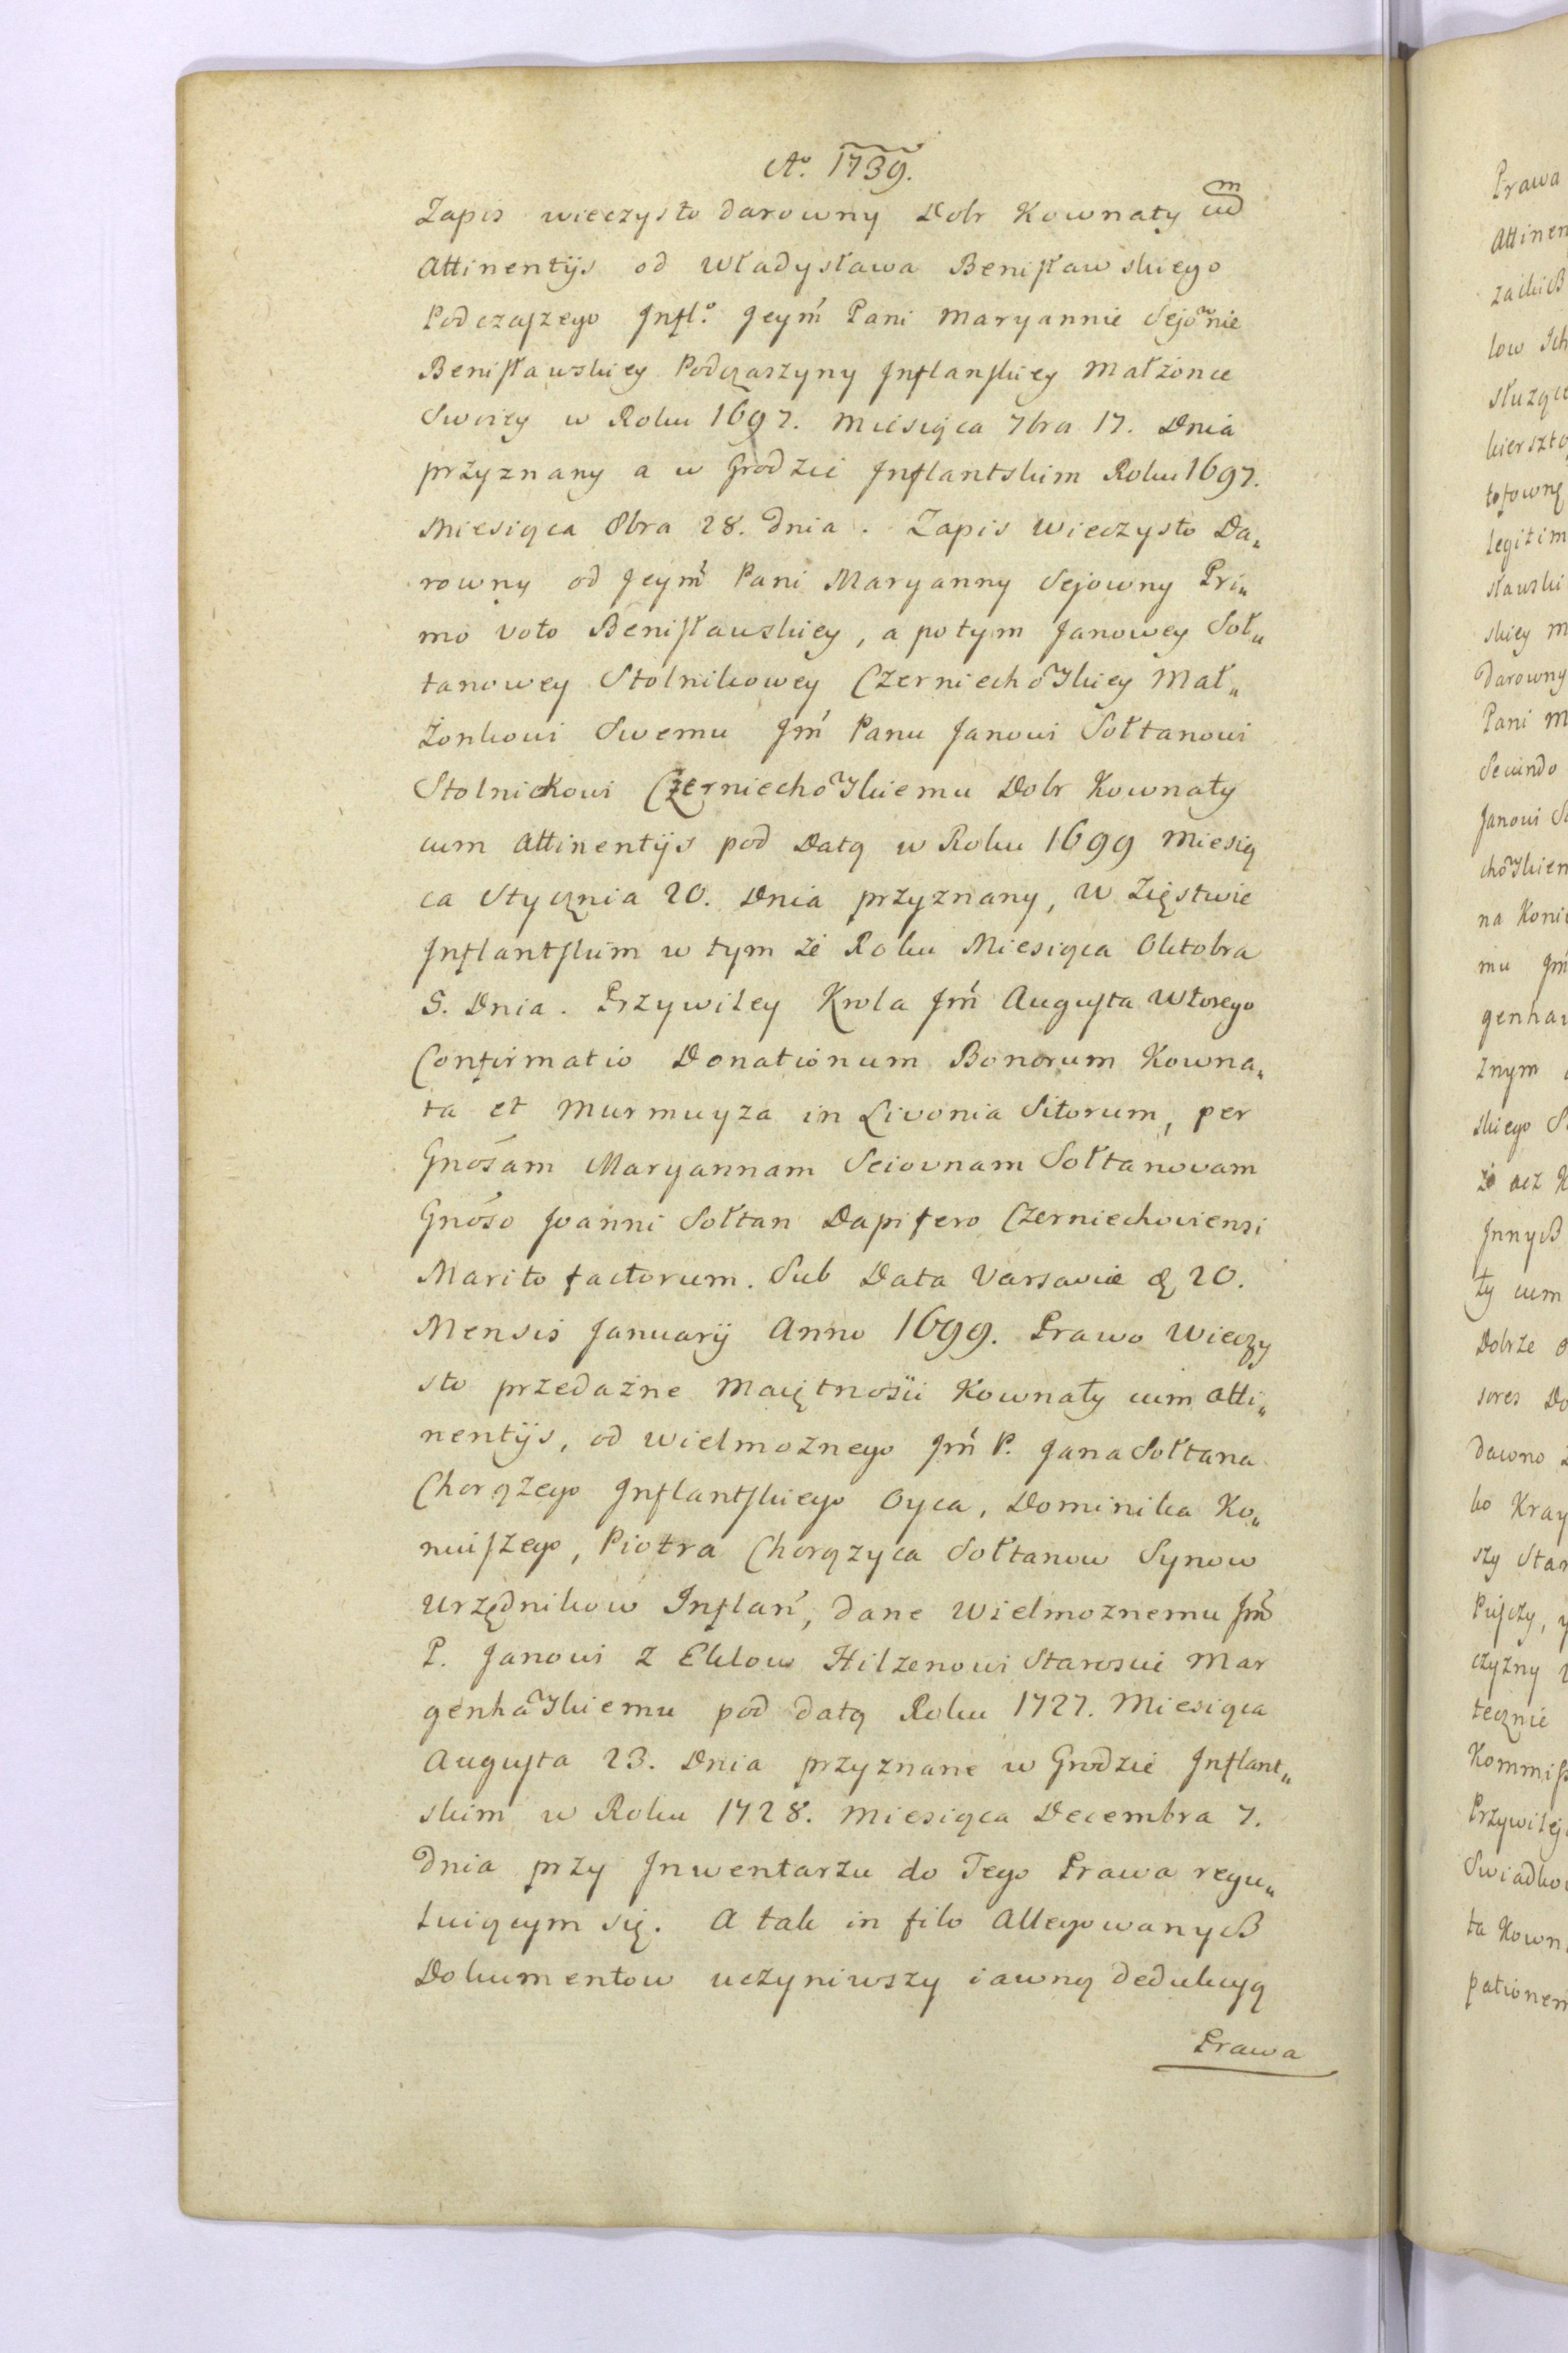 Aº. 1739.
Zapis wieczysto darowny Dobr Kownaty cum
Attinentijs od Władysława Benisławskiego
Podczaszego Infl.º Jeym̃ Pani Maryannie Sejowñie
Benisławskiey Podczaszyny Inflanskiey Małżonce
Swoiey w Roku 1697. Miesiąca 7bra 17. Dnia
przyznany a w Grodzie Inflantskim Roku 1697.
Miesiąca 8bra 28. dnia. Zapis Wieczysto Da„
rowny od Jeym̃ Pani Maryanny Sejowny Pri„
mo voto Benisławskiey, a potym Janowey Soł„
tanowey Stolnikowey Czerniechowskiey Mał„
żonkowi Swemu Jm̃ Panu Janowi Sołtanowi
Stolnickowi Czerniechowskiemu Dobr Kownaty
cum Attinentijs pod Datą w Roku 1699 Miesią
ca Stycznia 20. Dnia przyznany, w Zięstwie
Inflantskim w tym że Roku Miesiąca Oktobra
5. Dnia. Przywiley Krola Jm̃ Augusta Wtorego
Confirmatio Donationum Bonorum Kowna„
ta et Murmuyza in Livonia Sitorum, per
Gnosam Maryannam Seiovnam Sołtanovam
Gnoso Joanni Sołtan Dapifero Czerniechoviensi
Marito factorum. Sub Data Varsavie d 20.
Mensis Januarij Anno 1699. Prawo Wieczy
sto przedażne Maiętnosci Kownaty cum Atti„
nentijs, od Wielmoznego Jm̃ P. Jana Sołtana
Chorążego Inflantskiego Oyca, Dominika Ko„
niuszego, Piotra Chorązyca Sołtanow Synow
Urzędnikow Inflan̂, dane Wielmoznemu Jm̃
P. Janowi z Eklow Hilzenowi Staroscie Mar
genhawskiemu pod datą Roku 1727. Miesiąca
Augusta 23. Dnia przyznane w Grodzie Inflant„
skim w Roku 1728. Miesiąca Decembra 7.
dnia przy Inwentarzu do Tego Prawa regu„
luiącym się. A tak in filo Allegowanych
Dokumentow uczyniwszy iawną dedukcyą
Prawa